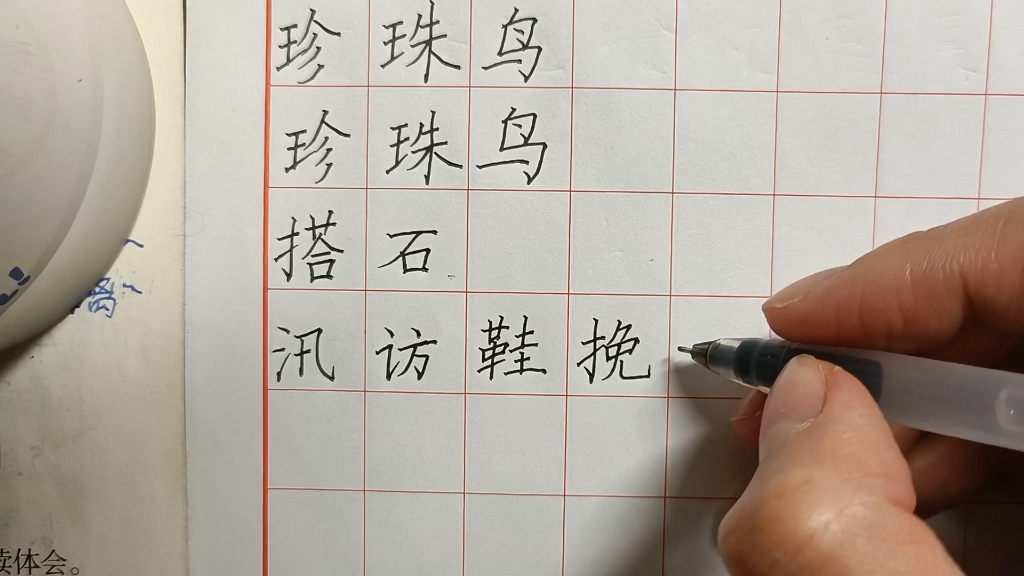 珍珠鸟
珍珠鸟
搭石
汛访鞋挽
读体会。